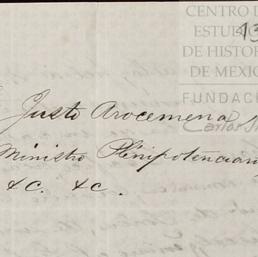 CENTRO D
ESTUD
DE HISTOR
DE MEXIC
FUNDAC
Carlos
Justo Arosemena
Ministro Plenipotencian
&c. &c.